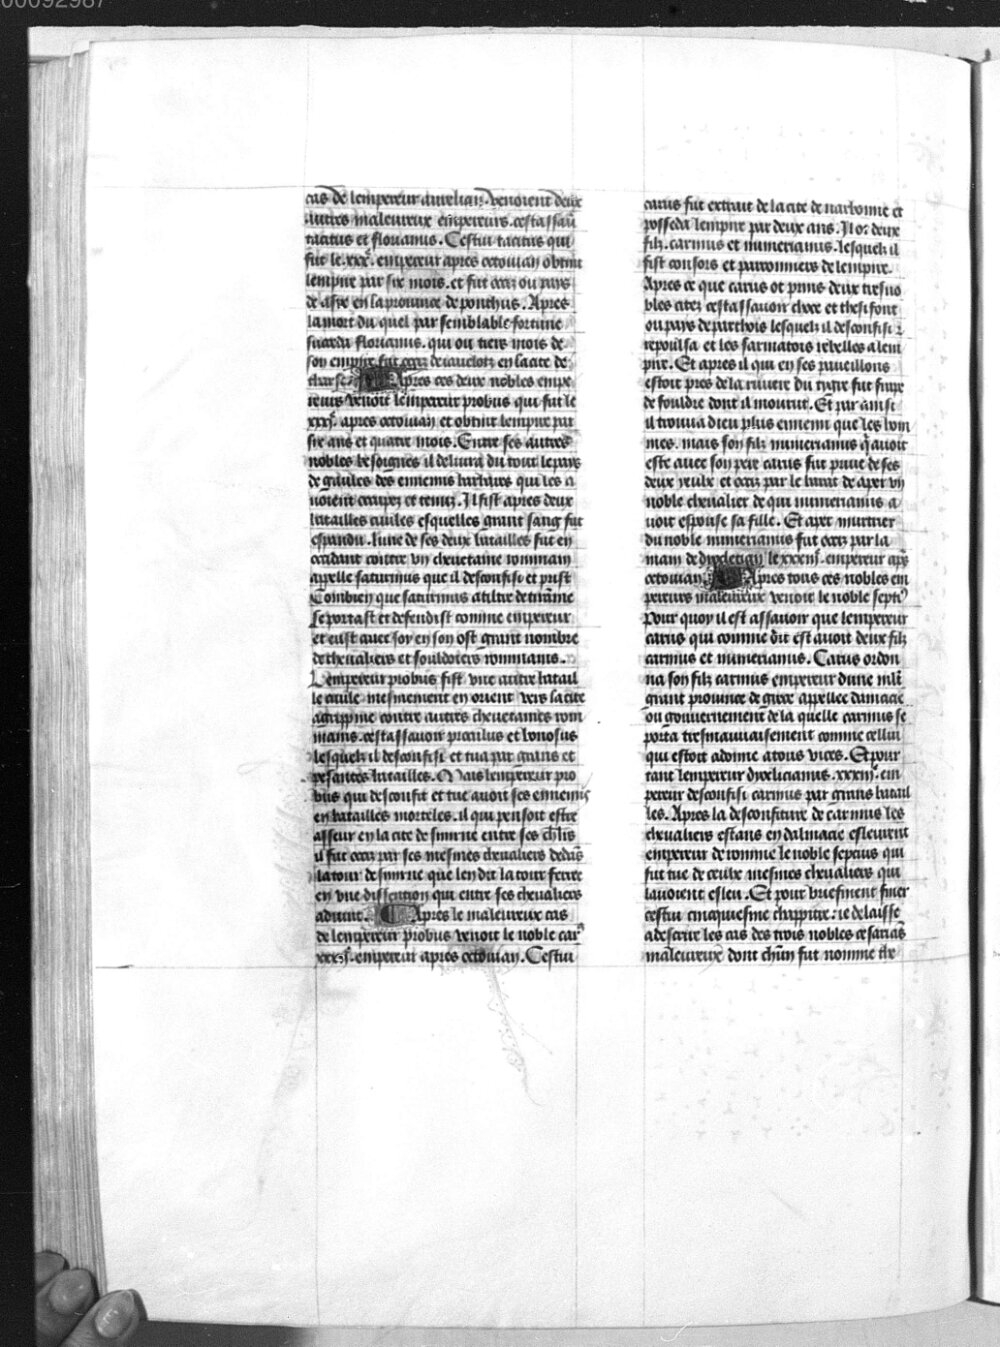 00092987
cas de lempereur aurelian. venoient deux
autres maleureux empereurs. cestassau
tacitus et florianus. Cestui tacitus qui
fut le .xxx. empereur apres octouian obtint
lempire par six mois. et fut occis ou pays
de asye en la prouince de ponthus. Apres
la mort du quel par semblable fortune
florianus. qui ou tiers mois de
son empire fut occis de iauelotz en la cite de
tharse. Apres ces deux nobles empe
reurs venoit lempereur probus qui fut le
apres octouian et obtint lempire par
six ans et quatre mois. Entre ses autres
nobles besoignes il deliura du tout le pays
de gaules des ennemis barbares qui les a
uoient occupez et tenuz. Il fist apres deux
batailles ciuiles esquelles grant sang fut
espandu. lune de ses deux batailles fut en
occidant contre vn cheuetaine rommain
appelle saturnius que il desconfisi et prist
Combien que saturnius a tiltre de tirannie
se portast et defendist comme empereur
et eust auec soy en son ost grant nombre
de cheualiers et souldoiers rommains.
Lempereur probus fist vne autre batail
le ciuile mesmement en orient vers la cite
agrippine contre autres cheuetaines rom
mains. cestassauoir procilus et bonosus
lesquelz il desconfisi et tua par grans et
pesantes batailles. Mais lempereur pro
bus qui desconfit et tue auoit ses ennemis
en batailles morteles. il qui pensoit estre
asseur en la cite de smirne entre ses
il fut occis par ses mesmes cheualiers dedans
la tour de smirne que len dit la tour ferree
en vne dissention qui entre ses cheualiers
aduint. Apres le maleureux cas
de lempereur probus venoit le noble car
empereur apres octouian. Cestui
carus fut extrait de la cite de narbonne et
posseda lempire par deux ans. Il ot deux
filz. carinus et numerianus. lesquelz il
fist consors et parconniers de lempire.
Apres ce que carus ot prins deux tresno
bles citez cestassauoir choce et thesifont
ou pays de parthois lesquelz il desconfisi
repoulsa et les sarmatois rebelles a lem
pire. Et apres il qui en ses paueillons
estoit pres de la riuiere du tigre fut frape
de fouldre dont il mourut. Et par ainsi
il trouua dieu plus ennemi que les hom
mes. mais son filz numerianus q auoit
este auec son pere carus fut priue de ses
deux yeulx et occis par le barat de aper vn
noble cheualier de qui numerianus a
uoit espouse sa fille. Et aper murtrier
du noble numerianus fut occis par la
main de dyocletian le xxxiii. empereur aps
octouian. Apres tous ces nobles em
pereurs maleureux venoit le noble septi
Pour quoy il est assauoir que lempereur
carus qui comme dit est auoit deux filz
carinus et numerianus. Carus ordon
na son filz carinus empereur dune
grant prouince de grece appellee dalmacie
ou gouuernement de la quelle carinus se
porta tresmauuaisement comme cellui
qui estoit adonne a tous vices. Et pour
tant lempereur dyoclicianus. xxxiii. em
pereur desconfisi carinus par grans batail
les. Apres la desconfiture de carinus les
cheualiers estans en dalmacie esleurent
empereur de romme le noble septius qui
fut tue de ceulx mesmes cheualiers qui
lauoient esleu. Et pour briefment finer
cestui cinquiesme chappitre: ie delaisse
a descrire les cas des trois nobles cesarias
maleureux dont chun fut nomme